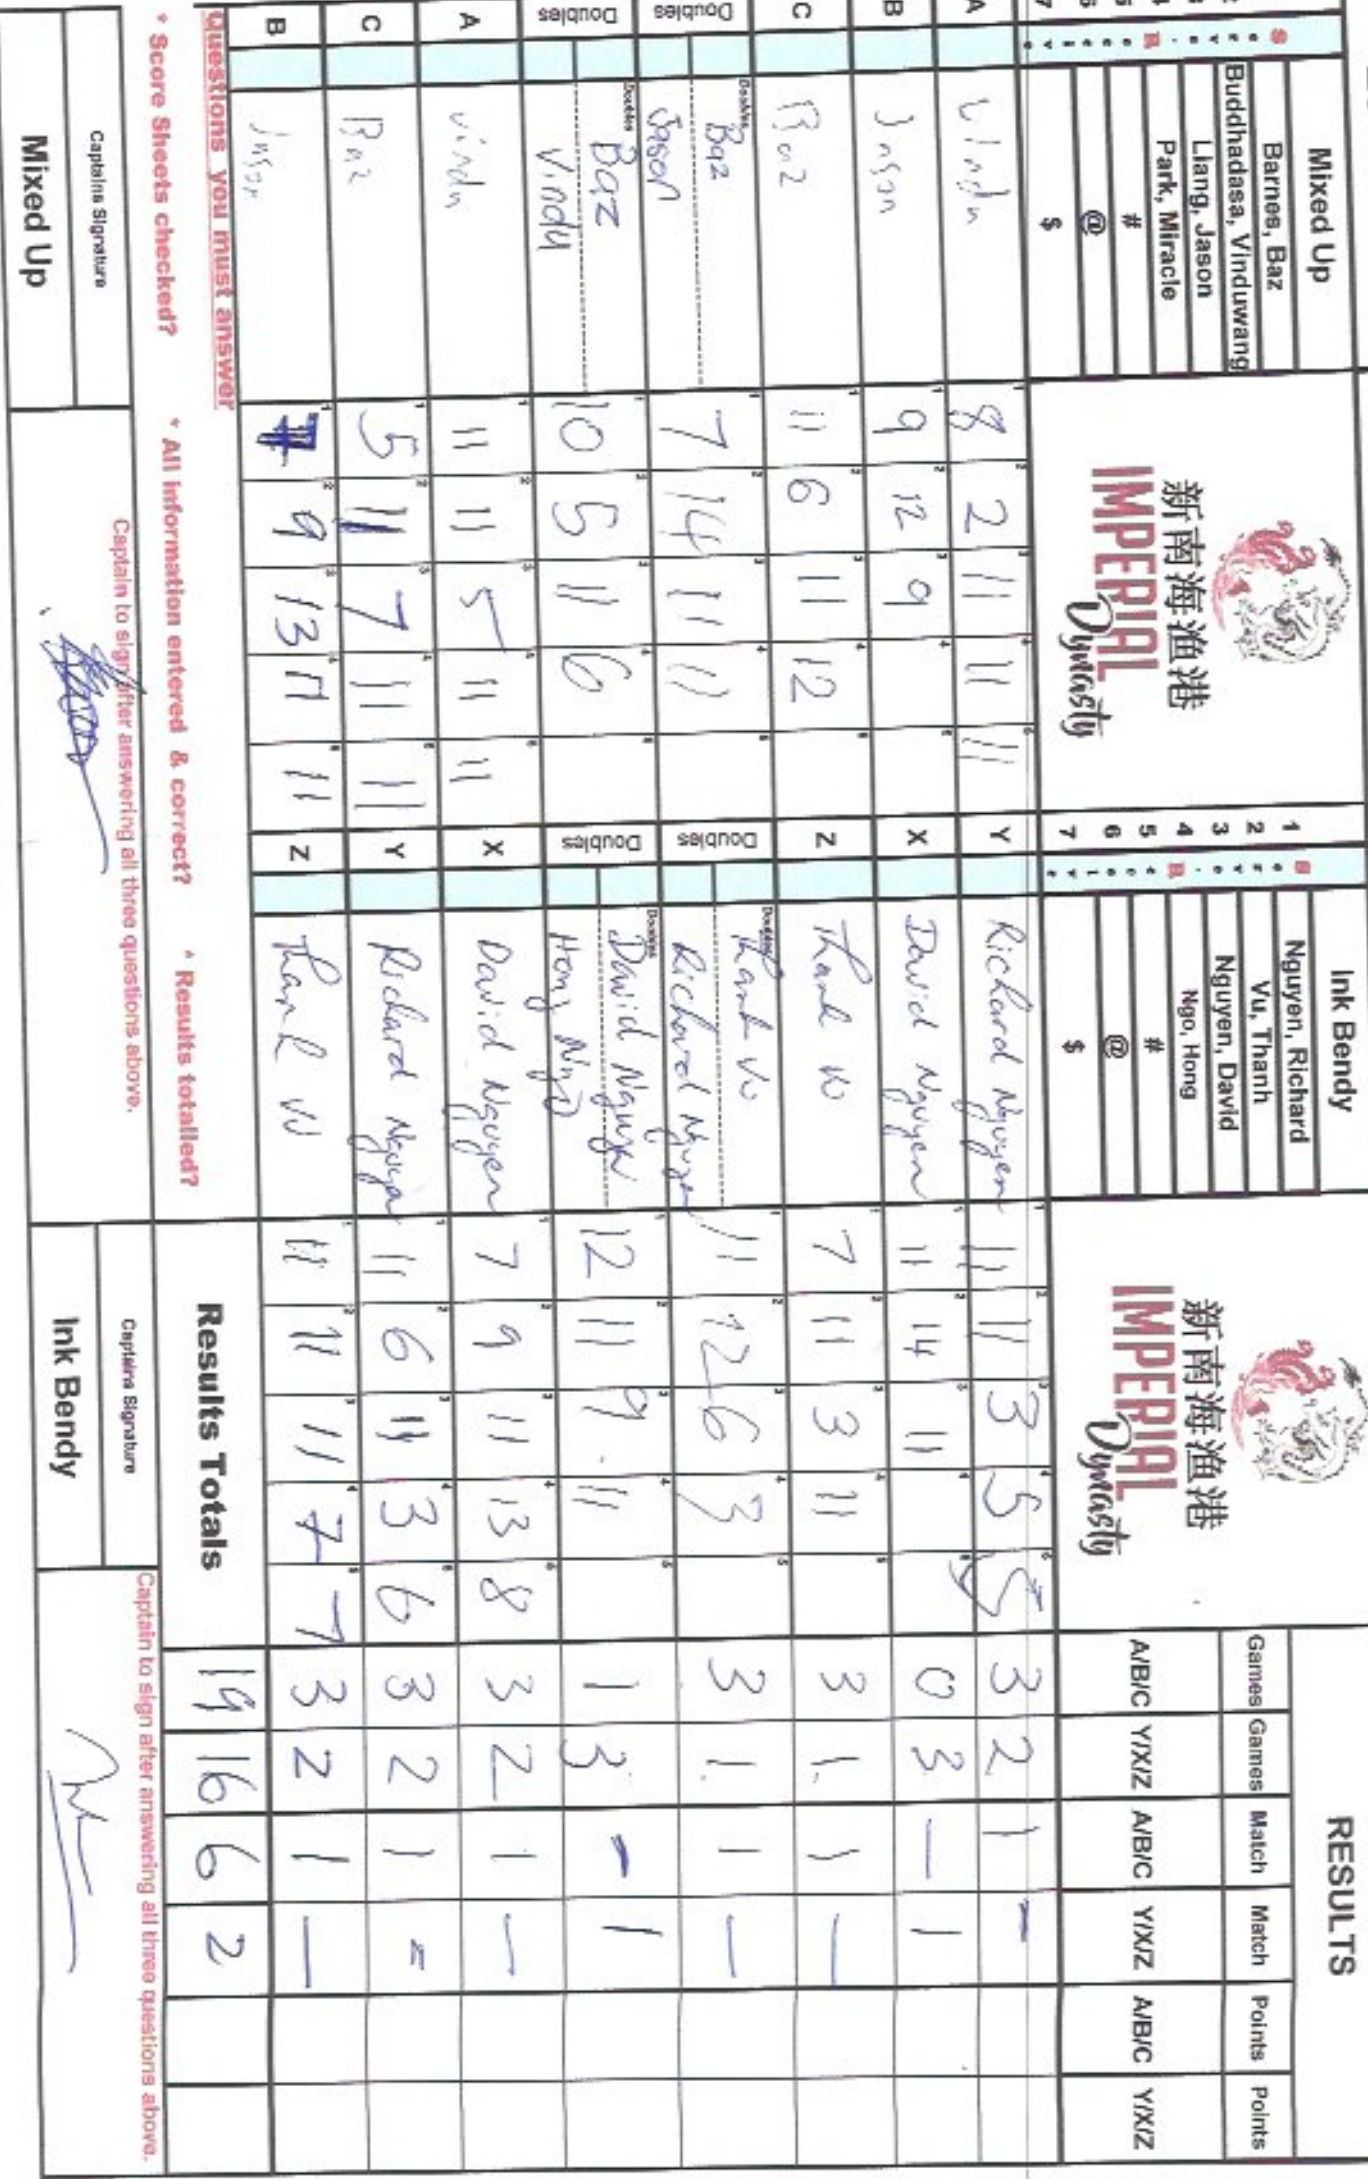 Mixed Up
Barnes, Baz
Buddhadasa, Vinduwang
Liang, Jason
Park, Miracle
#
@
$
新南海渔港
IMPERIAL
Dynasty
Ink Bendy
1 Nguyen, Richard
2 Vu, Thanh
3 Nguyen, David
4 Ngo, Hong
5 #
6 @
7 $
新南海渔港
IMPERIAL
Dynasty
RESULTS
Games Games Match Match Points Points
A/B/C Y/X/Z A/B/C Y/X/Z A/B/C Y/X/Z
A Vindu 8 2 11 11 11 Y Richard Nguyen 11 11 3 5 5 3 2 1 -
B Jason 9 12 9 X David Nguyen 11 14 11 0 3 - 1
C Baz 11 6 11 12 Z Thanh Vu 7 11 3 11 3 1 1 -
Doubles Baz 7 14 11 11 Doubles Thanh Vu 11 12 6 3 3 1 1 -
Jason Richard Nguyen
Doubles Baz 10 5 11 6 Doubles David Nguyen 12 11 9 11 1 3 - 1
Vindu Hong Ngo
A Vindu 11 11 5 11 11 X David Nguyen 7 9 11 13 8 3 2 1 -
C Baz 5 11 7 11 11 Y Richard Nguyen 11 6 11 3 6 3 2 1 =
B Jason 9 13 11 11 Z Thanh Vu 11 11 11 7 7 3 2 1 -
Questions you must answer
* Score Sheets checked? * All information entered & correct? * Results totalled?
Results Totals 19 16 6 2
Captains Signature
Captain to sign after answering all three questions above.
Mixed Up
Captains Signature
Captain to sign after answering all three questions above.
Ink Bendy